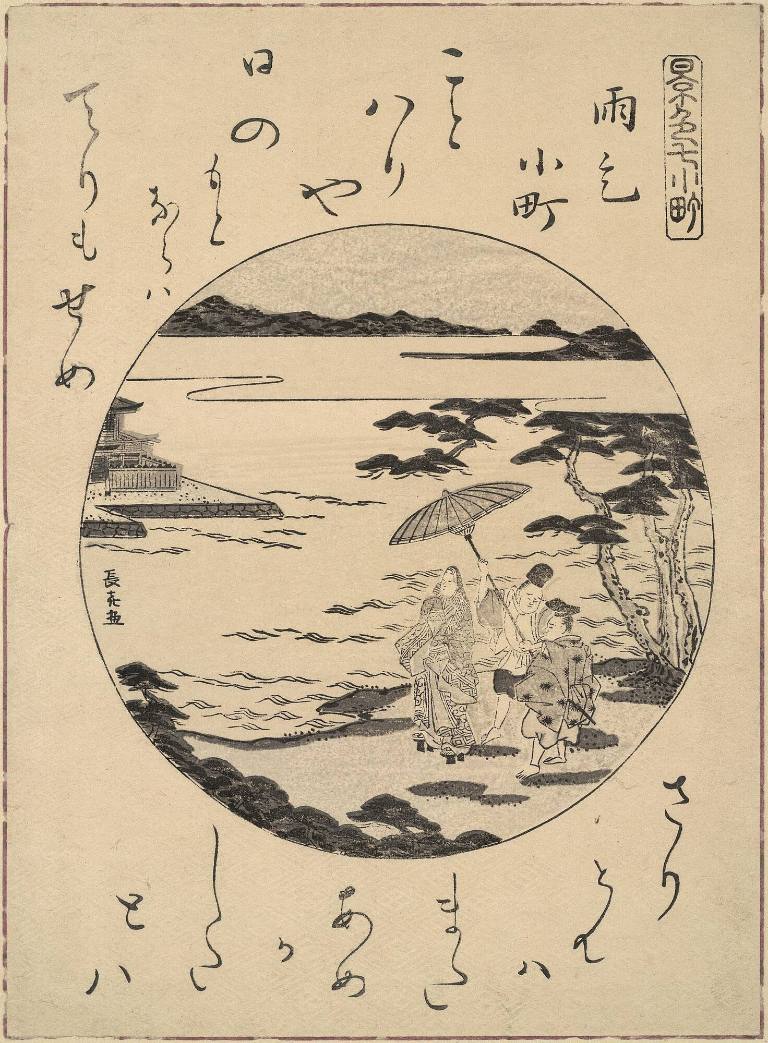 景色七小町
雨乞
小町
こと
ハり
や
日の
もと
ならハ
てりもせめ
さり
とて
ハ
また
あめ
か
した
とハ
長喜画